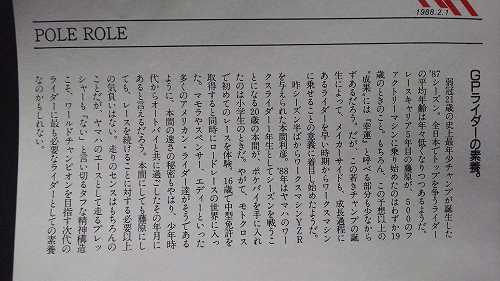 1988.2.1
POLE ROLE
GPライダーの素養。
弱冠21歳の史上最年少チャンプが誕生した
'87シーズン。全日本でトップを争うライダー
の平均年齢は年々低くなりつつあるようだ。
レースキャリア5年目の藤原が、500のフ
ァクトリーマシンに乗り始めたのはわずか19
歳のときのこと。もちろん、この予想以上の
「成果」には「密度」と呼べる部分も少なから
ずあるだろう。だが、この若きチャンプの誕
生によって、メイカーサイドも、成長過程に
あるライダーを早い時期からワークスマシン
に乗せることの意義に着目し始めたようだ。
昨シーズン半ばからワークスマシンYZR
を与えられた本間利彦。'88年はヤマハのワー
クスライダー1年生としてシーズンを戦うこ
とになる20歳の本間が、ポケバイを手に入れ
たのは小学生のときだ。やがて、モトクロス
で初めてのレースを体験。16歳で中型免許を
取得すると同時にロードレースの世界に入っ
た。マモラやスペンサー、エディーといった
多くのアメリカン・ライダー達がそうである
ように、本間の速さの秘密もやはり、少年時
代からオートバイと共に過ごしたその年月に
あると言えるだろう。本間にしても藤原にし
ても、レースを続けることに対する必要以上
の気負いはない。走りのセンスはもちろんの
ことだが、ヤマハのエースとして走るプレッ
シャーも「ない」と言い切るタフな精神構造
こそ、ワールドチャンピオンを目指す次代の
ライダーに最も必要なライダーとしての素養
なのかもしれない。